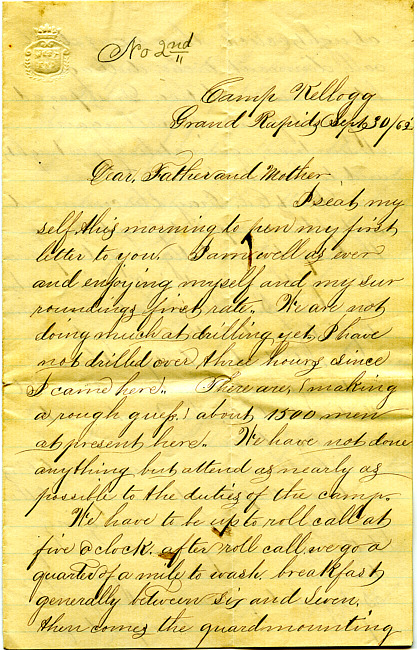 No 2nd
Camp Kellogg
Grand Rapids Sept 30/62
Dear, Father and Mother
I seat my
self this morning to pen my first
letter to you. I am well as ever
and enjoying myself and my sur
roundings first rate.. We are not
doing much at drilling yet, I have
not drilled over three hours since
I came here.. There are, (making
a rough guess) about 1500 men
at present here.. We have not done
anything but attend as nearly as
possible to the duties of the camp.
We have to be up to roll call at
five o clock. after roll call, we go a
quarter of a mile to wash. breakfast
generally between six and seven.
then comes the guardmounting